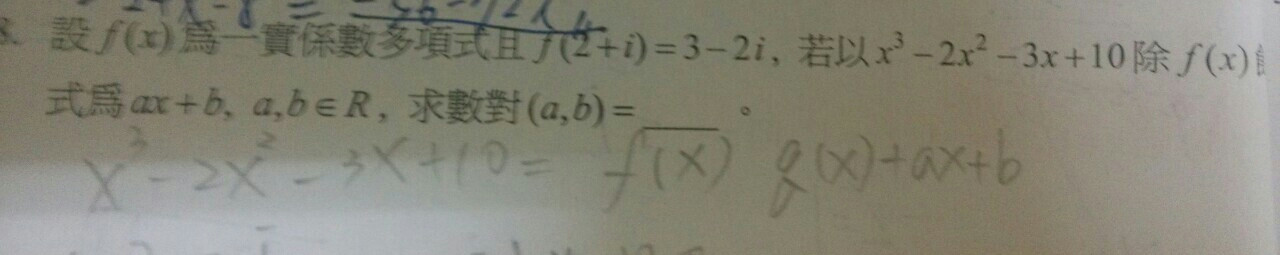 24x-8 = -56-72x
8. 設f(x)爲一實係數多項式且f(2+i)=3-2i, 若以x³-2x²-3x+10除f(x)
式爲ax+b, a,b∈R, 求數對(a,b)=____。
x³-2x²-3x+10= f(x) g(x)+ax+b